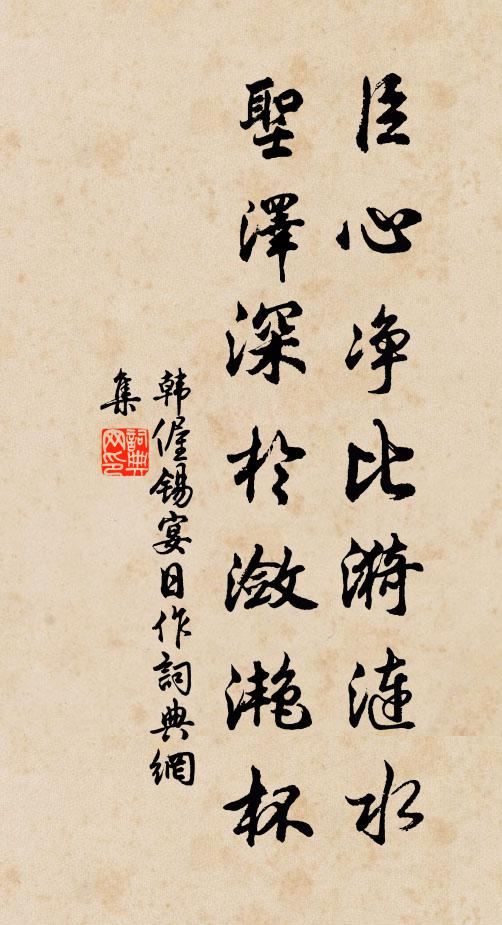 臣心净比漪漣水
聖澤深於瀲灩杯
韩偓锡宴日作詞典網
集
詞典
网印